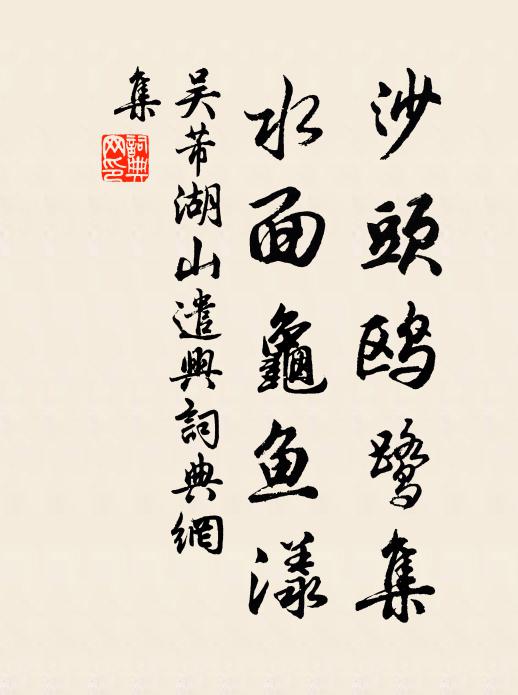 沙頭鸥鹭集
水面龜鱼漾
吴芾湖山遣興詞典網
集
詞典網印